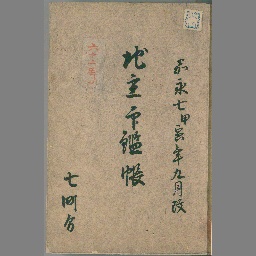 嘉永七甲寅年九月改
地主印鑑帳
七町分